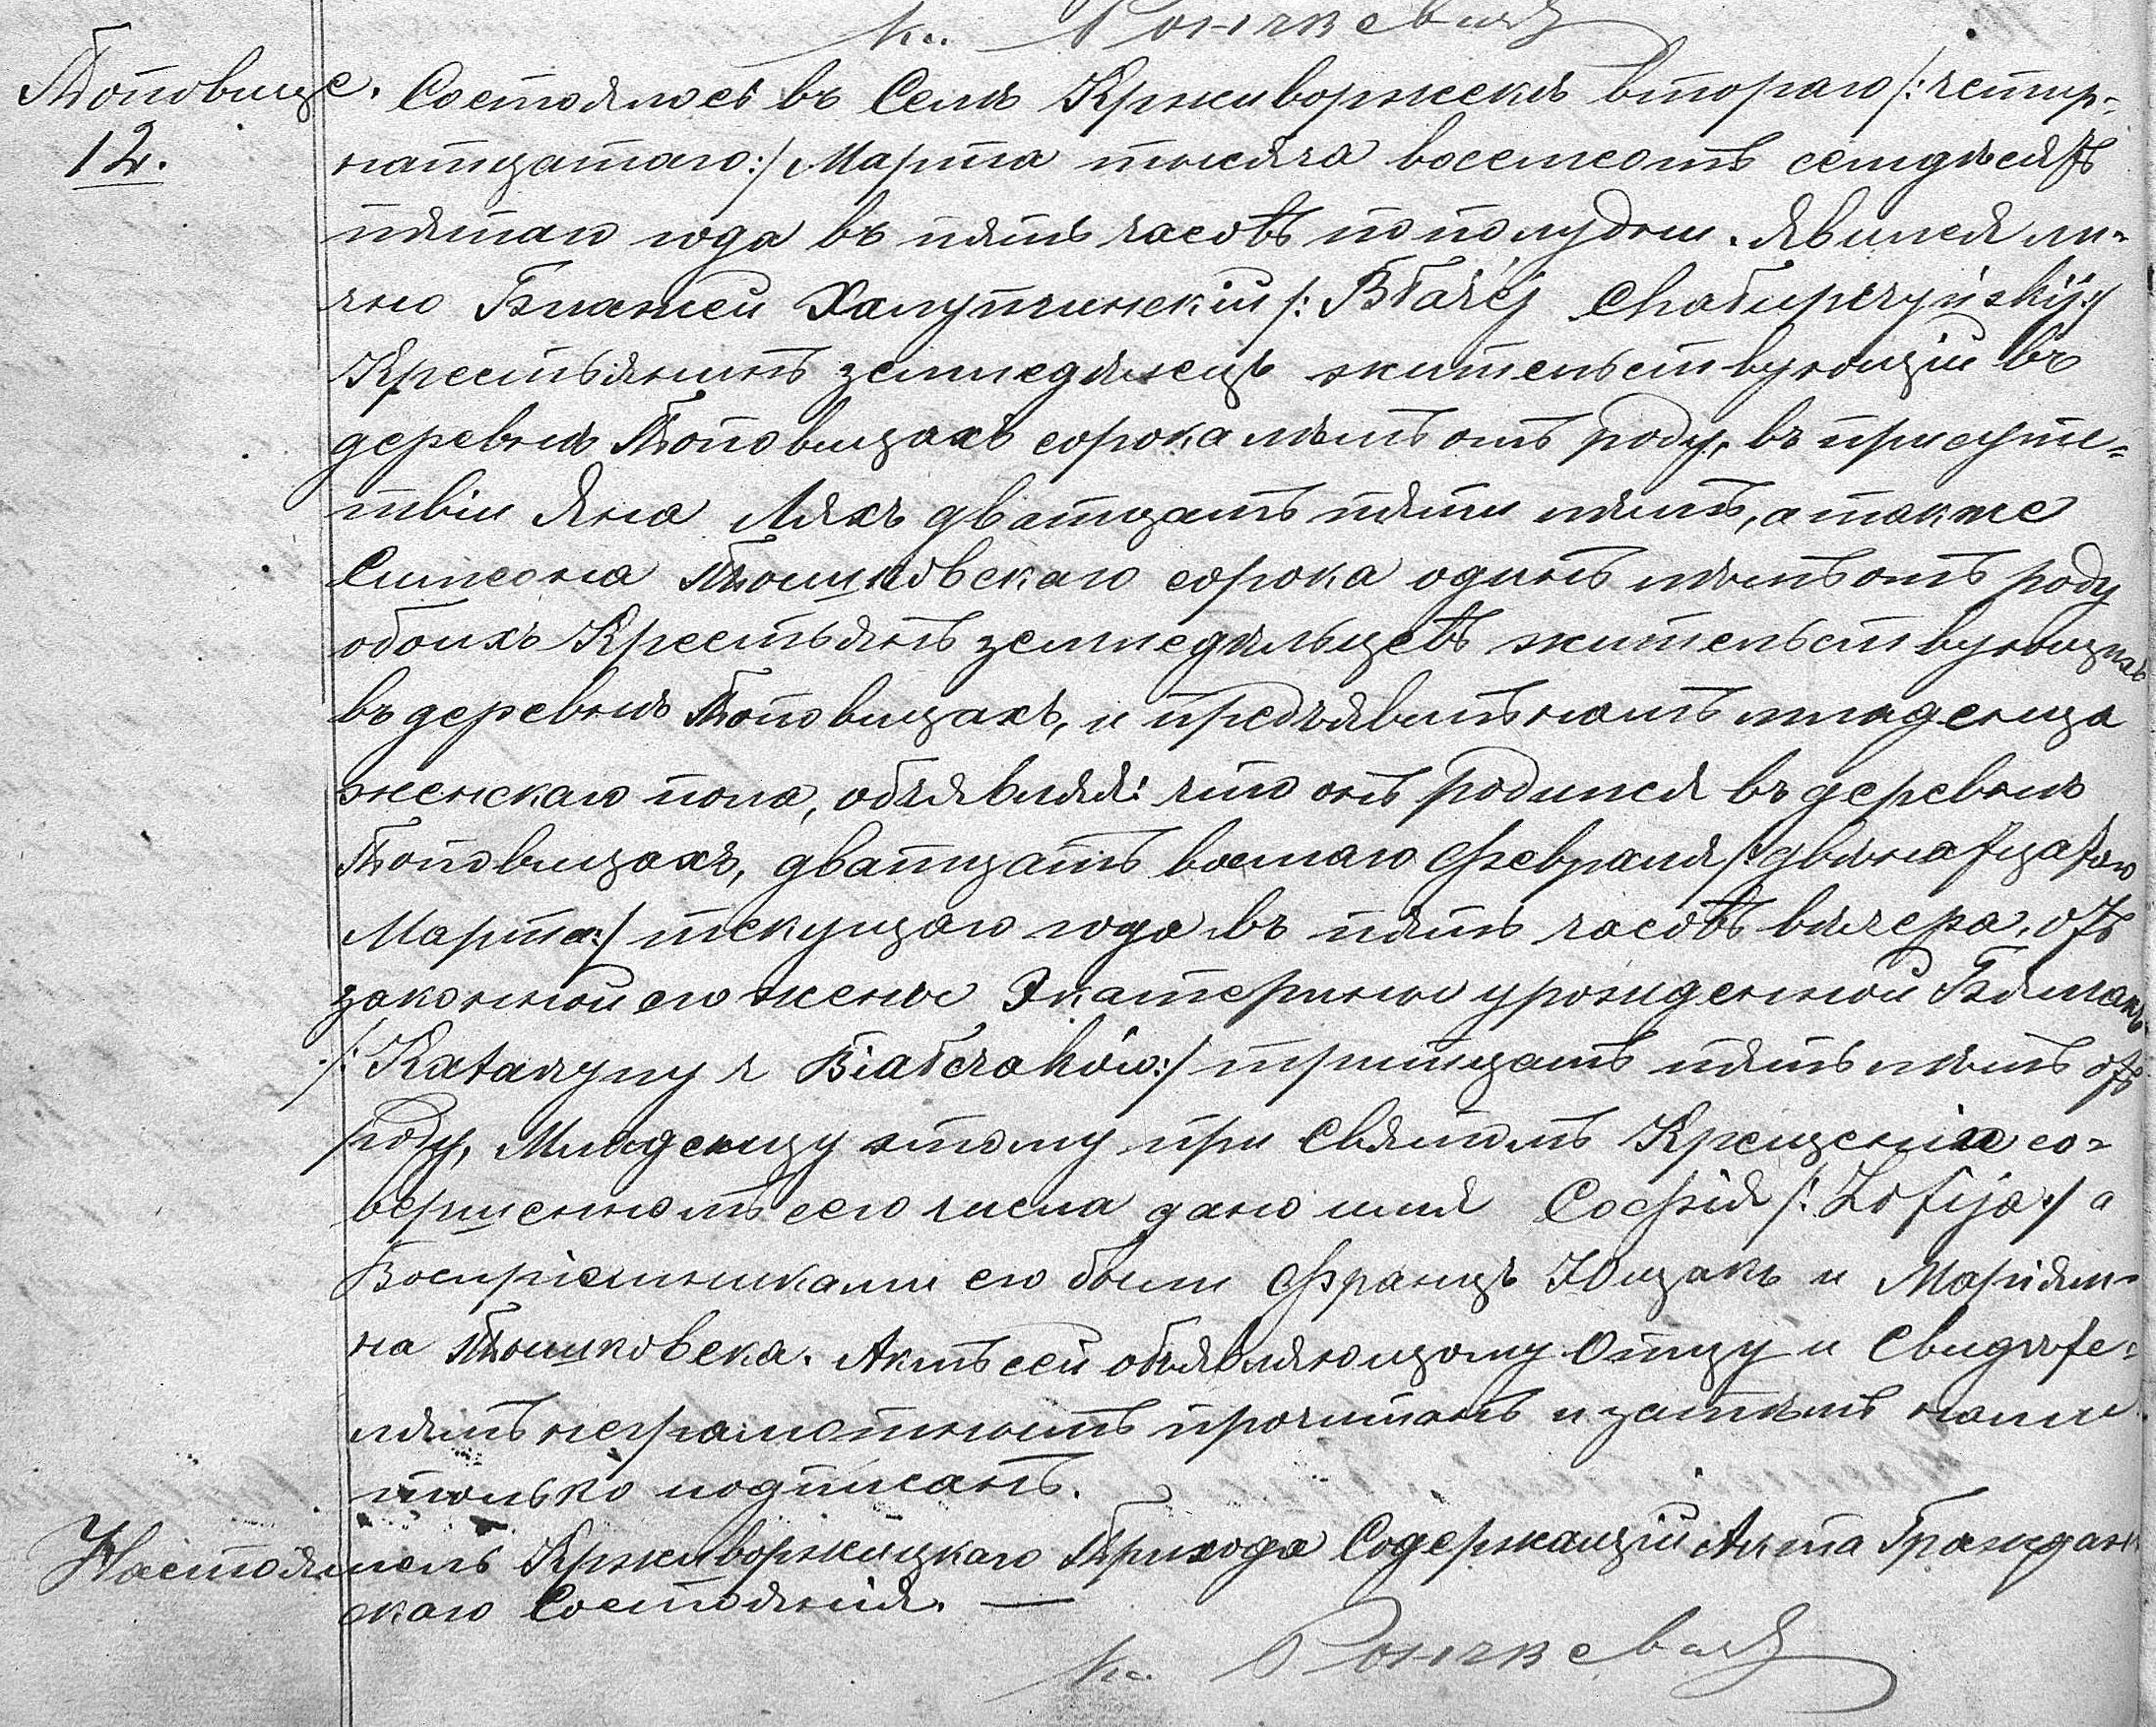 Кс. Рончкевичъ
Поповице. Состоялось въ Селѣ Крживоржекѣ втораго /:четыр=
12. натцатаго:/ Марта тысяча восемсотъ семдѣсятъ
пятаго года въ пять часовъ по полудни. Явился ли=
чно Блажей Халупчинскій /: Błażéj Chałupczyńskij:/
Крестьянинъ земледѣлецъ жительствующій въ
деревнѣ Поповицахъ сорока лѣтъ отъ роду, въ присутс=
твіи Яна Ляхъ дватцать пяти лѣтъ, а также
Симеона Піошковскаго сорока одинъ лѣтъ отъ роду
обоихъ Крестьянъ земледѣльцевъ жительствующихъ
въ деревнѣ Поповицахъ, и предъявилъ намъ младенца
женскаго пола, объявляя: что онъ родился въ деревнѣ
Поповицахъ, дватцать восмаго Февраля /:двѣнатцатаго
Марта:/ текущаго года въ пять часовъ вѣчера, отъ
законной его жены Экатерины урожденной Бялчакъ
/: Katarzyny z Białczaków:/ тритцать пять лѣтъ отъ
роду, Младенцу этому при Святомъ Крещеніи со=
вершенномъ сего числа дано имя Софія /: Zofija:/ а
Воспріемниками его были Францъ Ющакъ и Маріян=
на Піошковска. Актъ сей объявляющому Отцу и Свидѣте=
лямъ неграмотнымъ прочитанъ и затѣмъ нами
только подписанъ.
Настоятель Крживоржецкаго Прихода Содержащій Акта Граждан
скаго Состоянія. —
Кс. Рончкевичъ